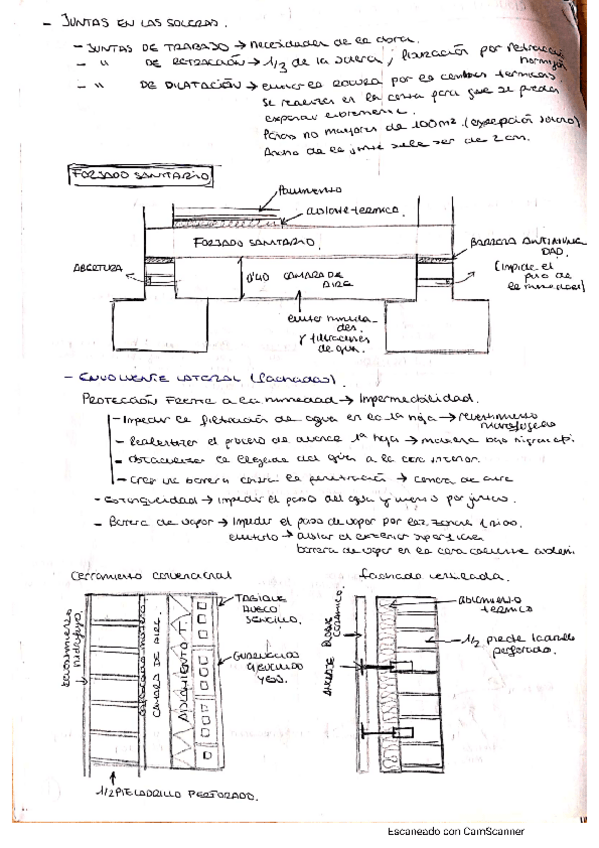 - JUNTAS EN LAS SOLERAS.
- JUNTAS DE TRABAJO → necesidades de la obra.
- " DE RETRACCIÓN → 1/3 de la solera, fisuración por retracción hormigón
- " DE DILATACIÓN → evitar la rotura por los cambios termicos.
Se realizan en la losa para que se pueda
expandir libremente.
Paños no mayores de 100m2. (excepción
Ancho de la junta suele ser de 2cm.
FORJADO SANITARIO
Pavimento
aislante termico.
FORJADO SANITARIO.
BARRERA ANTIHUMEDAD.
(Impide el
paso de
la humedad)
ABERTURA
0'40 CAMARA DE
AIRE
evitar humedades.
y filtraciones
de agua.
- ENVOLVENTE LATERAL (fachadas).
PROTECCIÓN Frente a la humedad → Impermeabilidad.
- Impedir la filtración de agua en la hoja → revestimiento
hidrofugado
- Ralentizar el proceso de avance la hoja →
- Obstaculizar la llegada del agua a la cara interior.
- Crear una barrera contra la penetración → camara de aire
- Estanqueidad → Impedir el paso del agua y
- Barrera de vapor → Impedir el paso de vapor por las zonas
evitarlo → aislar el exterior superficie
barrera de vapor en la cara caliente
cerramiento convencional
fachada ventilada.
revestimiento
hidrofugo
CAMARA DE AIRE.
AISLAMIENTO T.
TABIQUE
HUECO
SENCILLO.
GUARNECIDO
YESO.
1/2 PIE LADRILLO PERFORADO.
ANCLAJE
CERAMICO.
aislamiento
termico
1/2 pie de ladrillo
perforado.
Escaneado con CamScanner